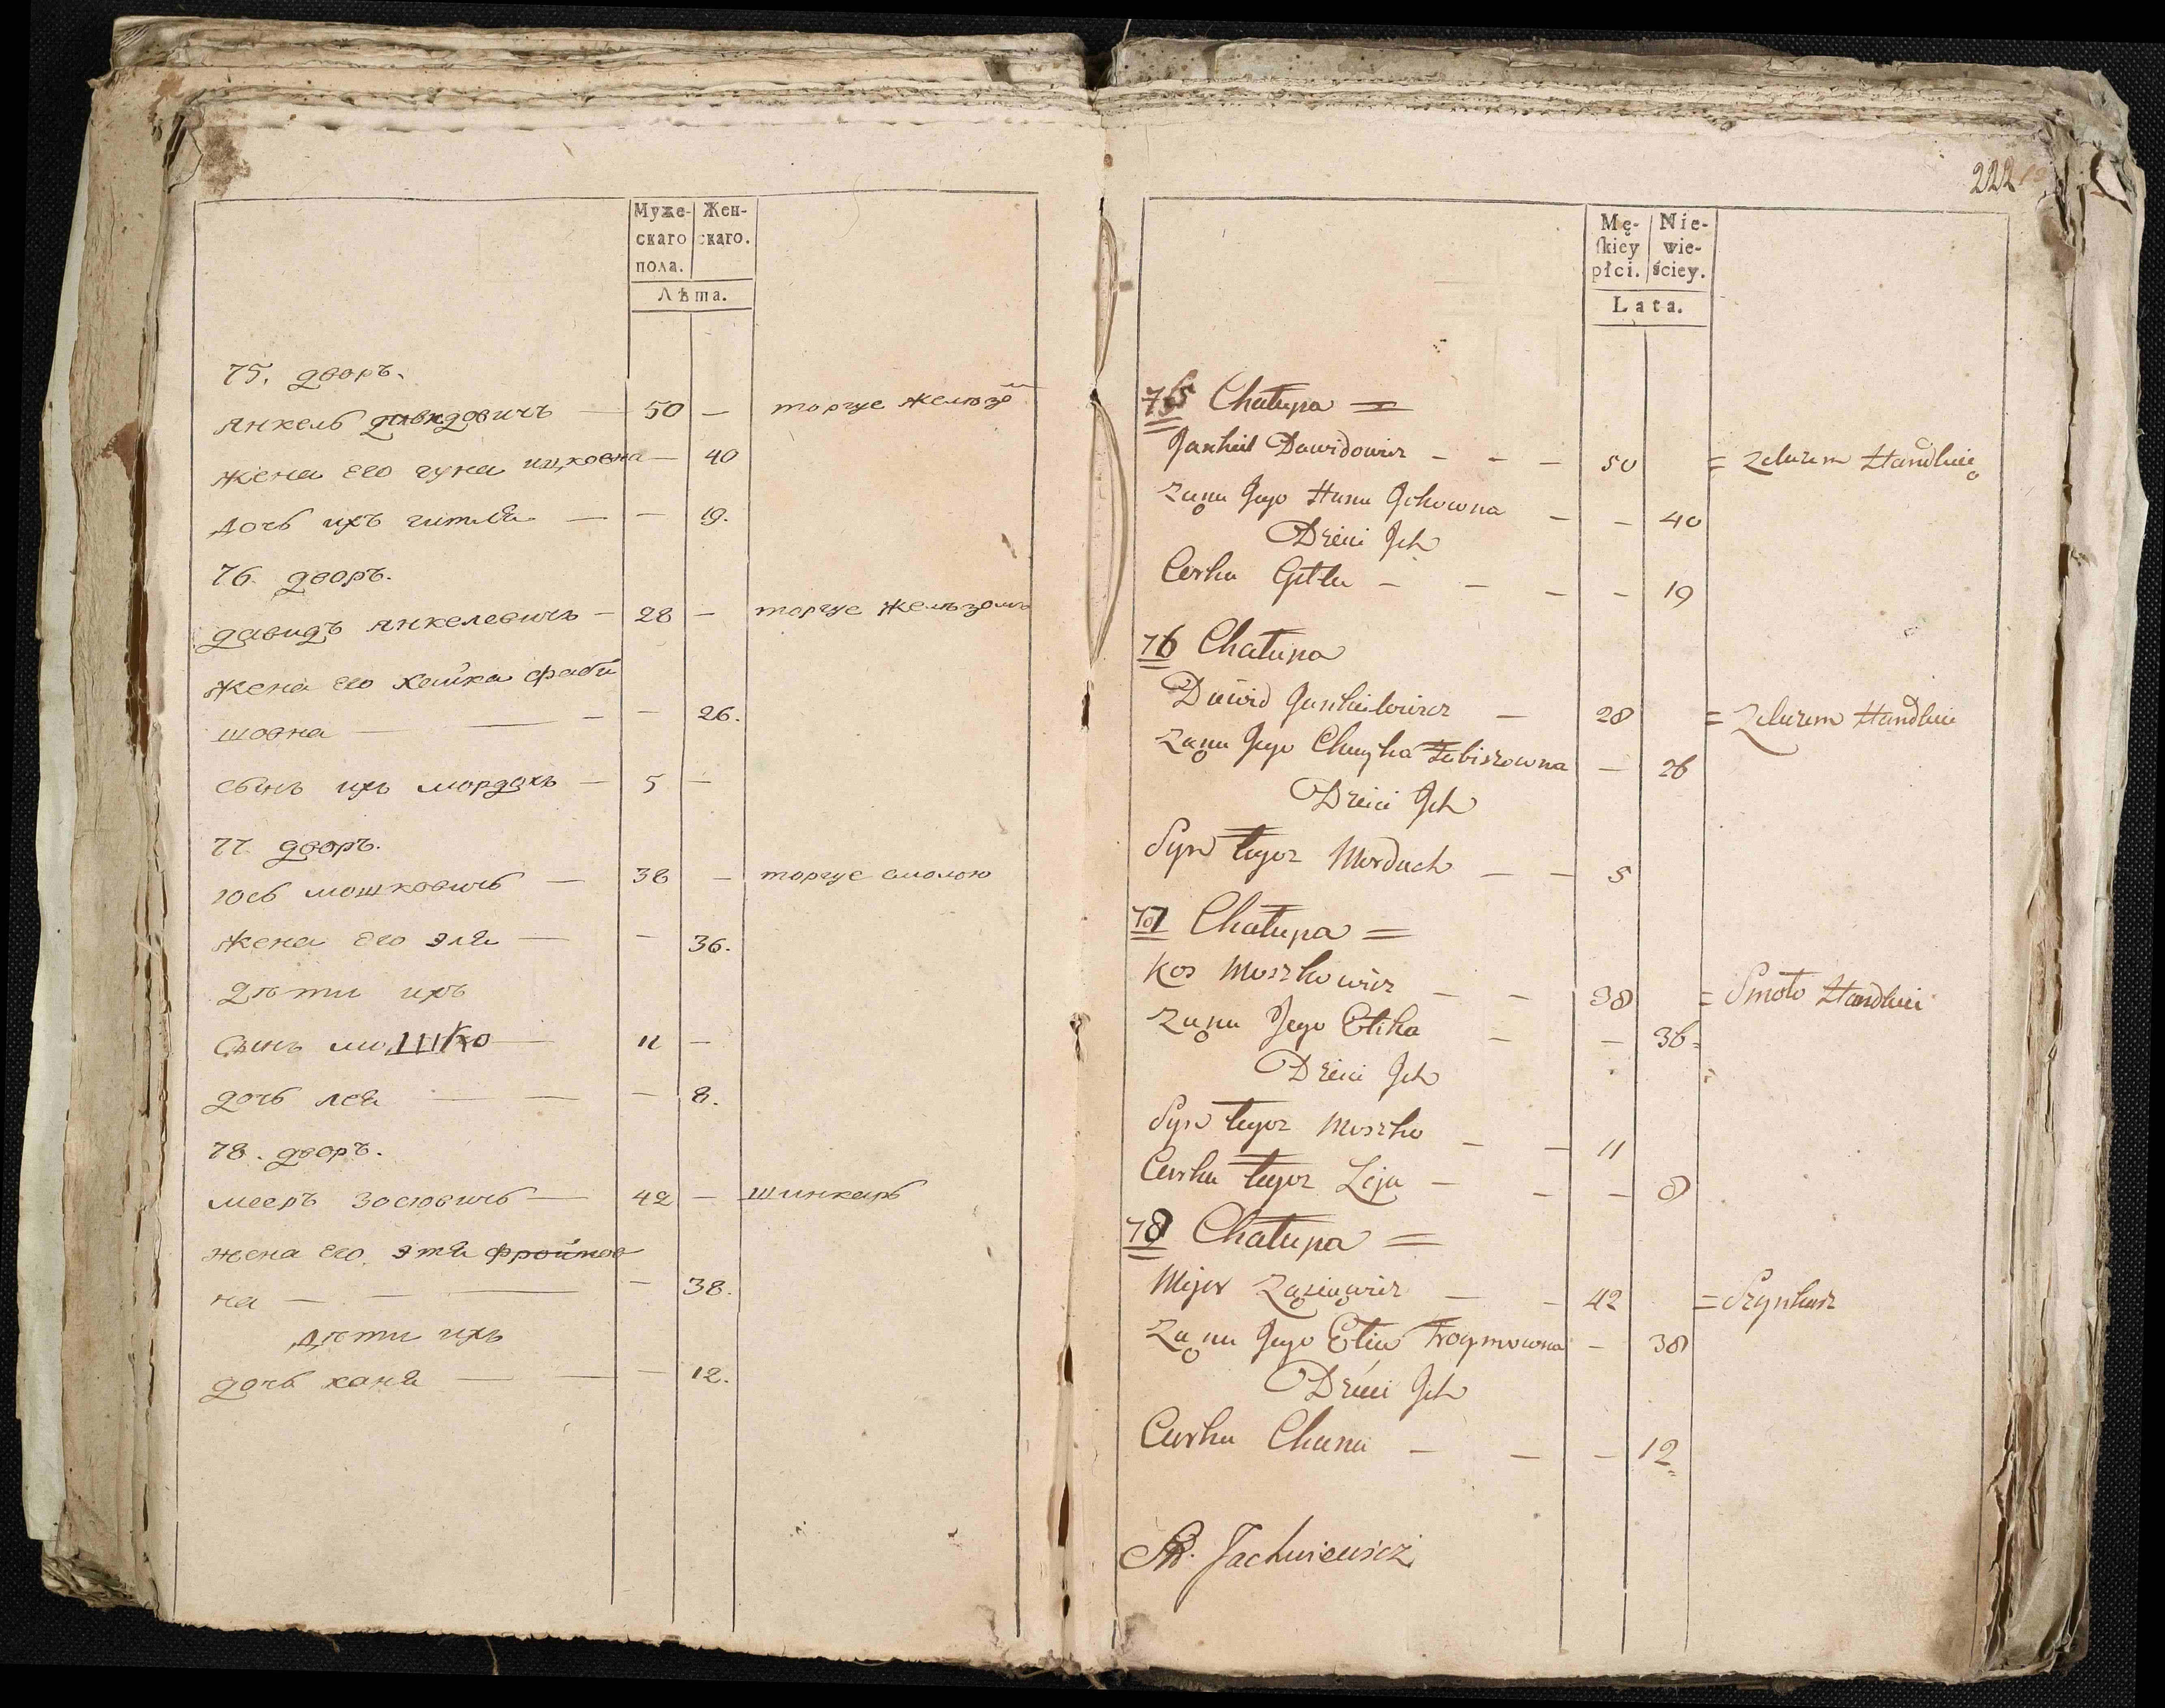 Муже- Жен-
скаго скаго.
пола.
Лѣта.
75. дворъ.
янкель давидовичъ — 50 — торгуе желюзо
жена его гуна ицковна — 40
дочь ихъ гитля — — 19.
76. дворъ.
давидъ янкелевичъ — 28 — торгуе желѣзомъ
жена его хайка фаби
шовна — — — — 26.
сынъ ихъ мордохъ — 5 —
77. дворъ.
юсь мошковичь — 38 — торгуе смолою
жена его эля — — 36.
дѣти ихъ
сынъ мошко — 11 —
дочь лея — — — 8.
78. дворъ.
мееръ зосювичь — 42 — шинкарь
жена его этя фроимов
на — — — — 38.
дѣти ихъ
дочь ханя — — — 12.
222
Mę- Nie-
ſkiey wie-
płci. ściey.
Lata.
75 Chałupa =
Jankiel Dawidowicz — — — 50 = Zelazem Handluie
Żona Jego Huna Ickowna — — 40
Dzieci Ich
Corka Gitla — — — — 19
76 Chałupa
Dawid Jankielowicz — 28 = Zelazem Handluie
Żona Jego Chayka Fabiszowna — 26
Dzieci Ich
Syn tegoż Morduch — — 5
77 Chałupa =
Kos Moszkowicz — — 38 = Smoło Handluie
Żona Jego Etka — — 36
Dzieci Ich
Syn tegoż Moszko — — 11
Curka tegoż Leja — — — 8
78 Chałupa =
Mejer Zosiowicz — — 42 = Szynkarz
Żona Jego Etia Froymowna — 38
Dzieci Ich
Curka Chana — — — 12
Jachniewicz